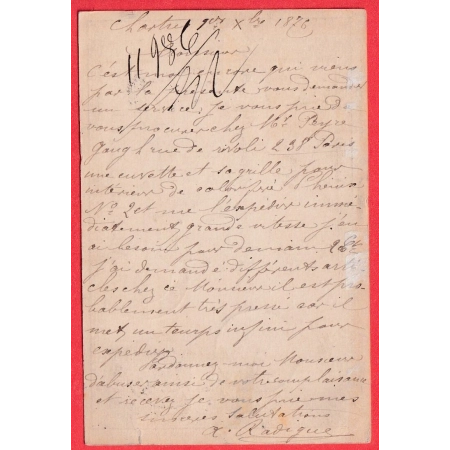 Chartres 1er Xbre 1876
11986
Monsieur
C'est moi encore qui viens
par la présente vous demander
un service. Je vous prie de
vous procurer chez Mr Peyre
rue de rivoli 238 Paris
une cuvette et sa grille pour
intérieur de calorifère
No 2 et me l'expédier immé-
diatement, grande vitesse j'en
ai besoin pour demain
j'ai demandé différents arti-
cles chez ce Monsieur il est pro-
bablement très pressé car il
met un temps infini pour
expédier.
Pardonnez-moi Monsieur
d'abuser ainsi de votre complaisance
et recevez je vous prie mes
sincères salutations
A. Radigue